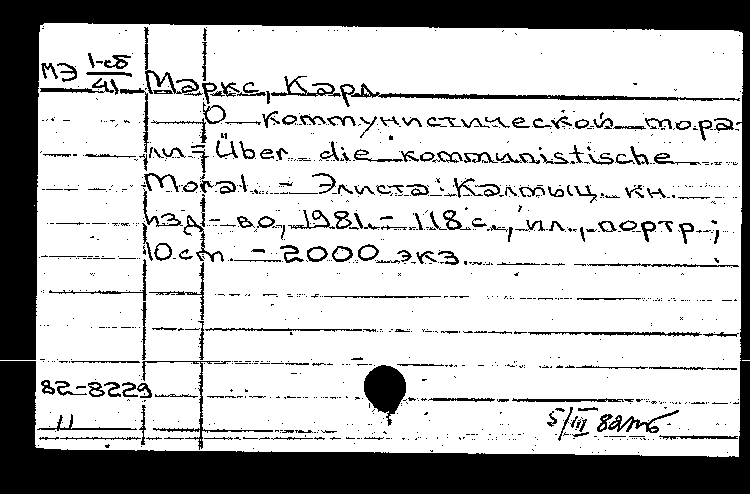 МЭ 1-сб
41
Маркс, Карл
О коммунистической мора-
ли = Über die kommunistische
Moral. – Элиста: Калмыц. кн.
изд-во, 1981. – 118 с., ил., портр.;
10 см. – 2000 экз.
82-8229
11
5/III 82